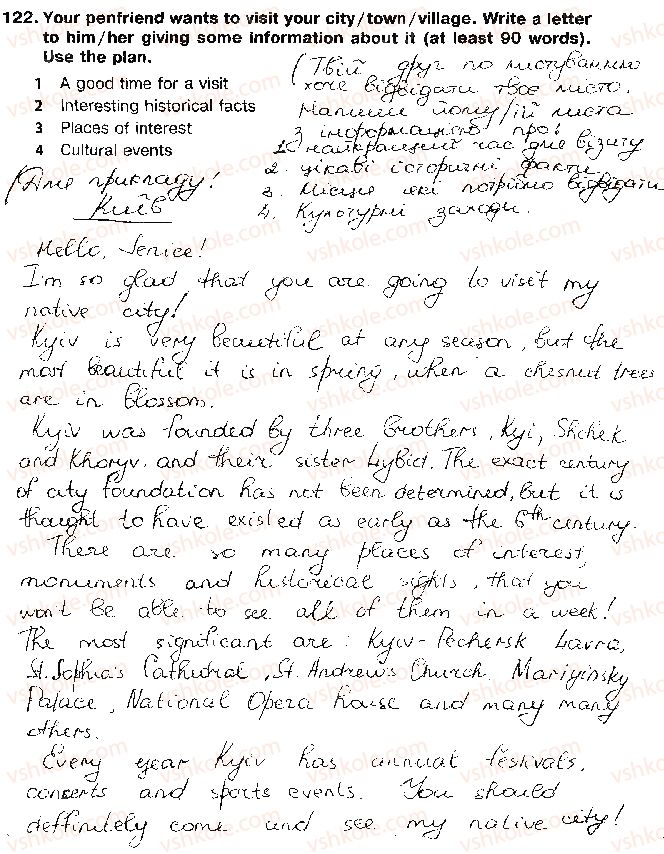 122. Your penfriend wants to visit your city/town/village. Write a letter
to him/her giving some information about it (at least 90 words).
Use the plan.
1 A good time for a visit
2 Interesting historical facts
3 Places of interest
4 Cultural events
(Твій друг по листуванню
хоче відвідати твоє місто.
Напиши йому/їй листа
з інформацією про:
1. найкращий час для візиту
2. цікаві історичні факти
3. Місця які потрібно відвідати
4. Культурні заходи.
(Для прикладу!
Київ
Hello, Jenice!
I'm so glad that you are going to visit my
native city!
Kyiv is very beautiful at any season, but the
most beautiful it is in spring, when a chesnut trees
are in blossom.
Kyiv was founded by three brothers, Kyi, Shchek
and Khoryv, and their sister Lybid. The exact century
of city foundation has not been determined, but it is
thought to have existed as early as the 6th century.
There are so many places of interest,
monuments and historical sights, that you
won't be able to see all of them in a week!
The most significant are: Kyiv-Pechersk Lavra,
St. Sophia's Cathudral, St. Andrew's Church, Mariyinsky
Palace, National Opera house and many many
others.
Every year Kyiv has annual festivals,
concerts and sports events. You should
deffinitely come and see my native city!
vshkole.com